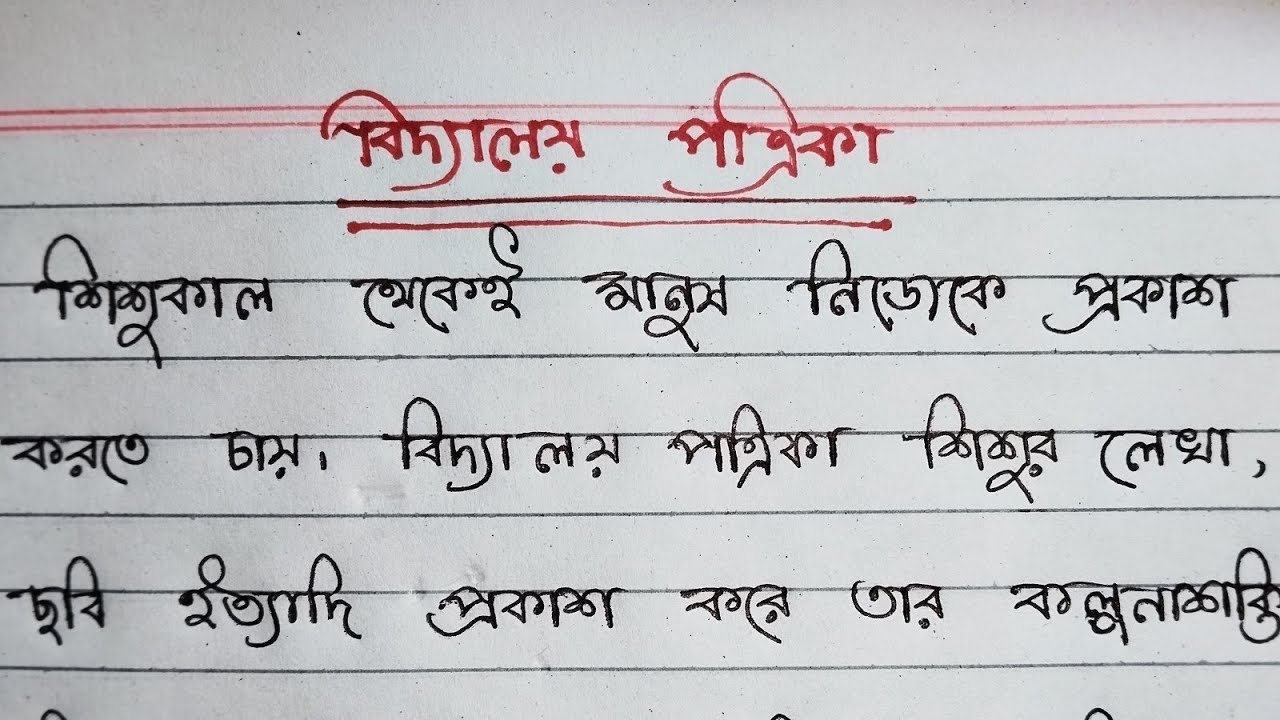 বিদ্যালয় পত্রিকা
শিশুকাল থেকেই মানুষ নিজেকে প্রকাশ
করতে চায়। বিদ্যালয় পত্রিকা শিশুর লেখা,
ছবি ইত্যাদি প্রকাশ করে তার কল্পনাশক্তি